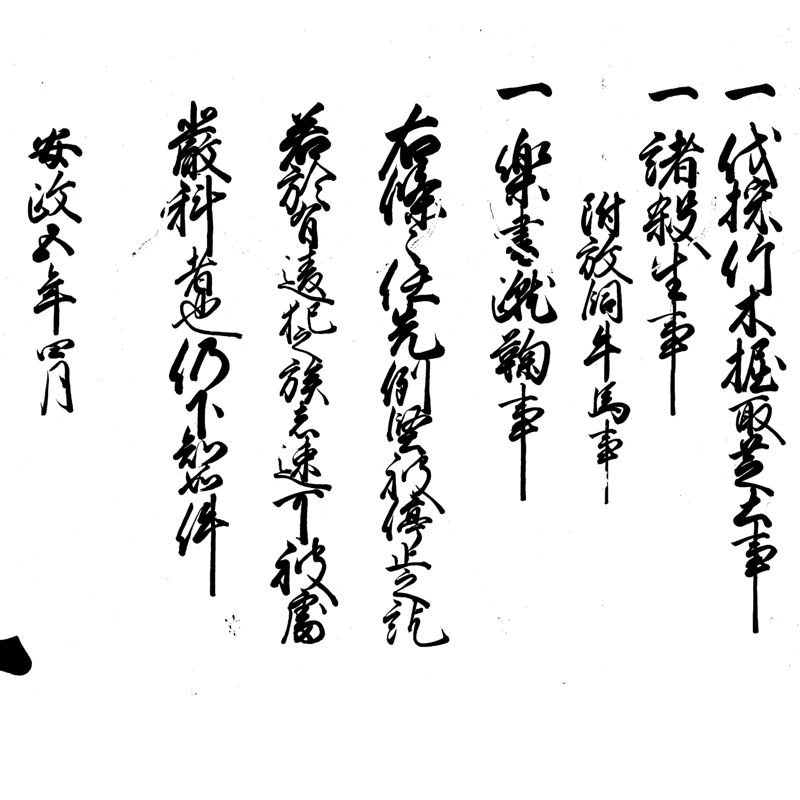 一 伐採竹木掘取芝土事
一 諸殺生事
附放飼牛馬事
一 楽書蹴鞠事
右條々任先例堅被停止之訖
若於有違犯之族者速可被處
嚴科者也仍下知如件
安政五年四月